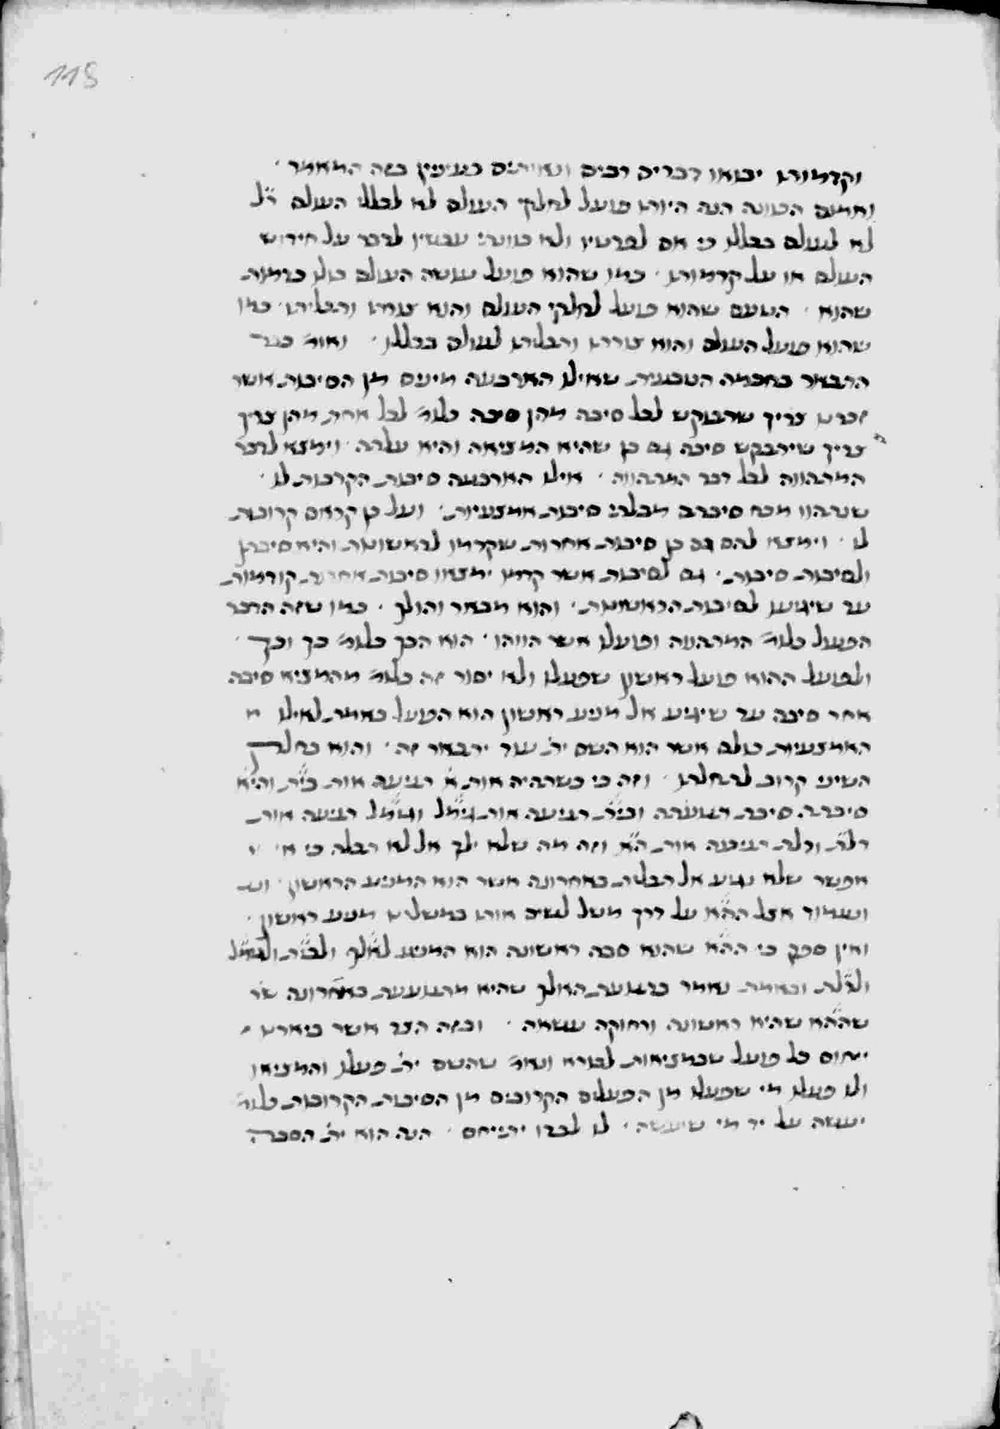 118
וקדמותו יבואו דברים רבים ונאותים בענינין בזה המאמר ·
ואמנם הכוונה הנה היותו פועל לחלקי העולם לא לכללו העולם ר״ל
לא לעולם בכללו כי אם לפרטיו ולא כוונתי עכשיו לדבר על חידוש
העולם או על קדמותו · כמו שהוא פועל עושה העולם כולו כדמות
שהוא · הטעם שהוא פועל לחלקי העולם והוא צורתו ותכליתו · כמו
שהוא פועל העולם והוא צורתו ותכליתו לעולם בכללו · ואומ׳ כבר
התבאר בחכמה הטבעית שאילו הארבעה מינים מן הסיבות אשר
זכרנו צריך שתבוקש לכל סיבה מהן סיבה כלומ׳ לכל אחת מהן צריך
צריך שיתבקש סיבה גם כן שהיא המציאה והיא עלתה · וימצא לדבר
המתהווה לכל דבר המתהווה · אילו הארבעה סיבות הקרובות לו ·
שנתהוו מכח סיבתם מבלתי סיבות אמצעיות · ועל כן קראם קרובות
לו · וימצא להם גם כן סיבות אחרות שקדמו לראשונות והיא סיבתן
ולסיבות סיבות · גם לסיבות אשר קדמו ימצאו סיבות אחרות קודמות
עד שיגיעו לסיבות הראשונות · והוא מבואר והולך · כמו שזה הדבר
הפעול כלומ׳ המתהווה ופועלו אשר הווהו · הוא הכך כלומ׳ כך וכך ·
ולפועל ההוא פועל ראשון שפעלו ולא יסור זה כלומ׳ מהמציא סיבה
אחר סיבה עד שיגיע אל מניע ראשון הוא הפועל באמת לאילו
האמצעיות כולם אשר הוא השם ית׳ עוד יתבאר זה · והוא בחלק
השיני קרוב לתחלתו · וזה כי כשתהיה אות א׳ תניעה אות בי״ת והיא
סיבתה סיבת תנועתה ובי״ת תניעה אות גימ״ל וגימ״ל תניעה אות
דל״ת ודלת תניעה אות ה״א וזה מה שלא ילך אל לא תכלה כי א׳
אפשר שלא נגיע אל תכלית באחרונה אשר הוא המניע הראשון ·
ונעמוד אצל הה״א על דרך משל לשים אותו במשלינו מניע ראשון ·
ואין ספק כי הה״א שהוא סבה ראשונה הוא המניע לאל״ף ולבי״ת ולגימ״ל
ולדל״ת ובאמת נאמר בתנועת האלף שהיא מתנועעת באחרונה
שהה״א שהיא ראשונה ורחוקה עשאה · ובזה הצד אשר ביארנו
ייחוס כל פועל שבמציאות לבורא ונאמ׳ שהשם ית׳ פעלו והמציאו
ולו פעלו מי שפעלו מן הפועלים הקרובים מן הסיבות הקרובות כלומ׳
יעשה על יד מי שיעשה · לו לבדו יתייחס · הנה הוא ית׳ הסבה